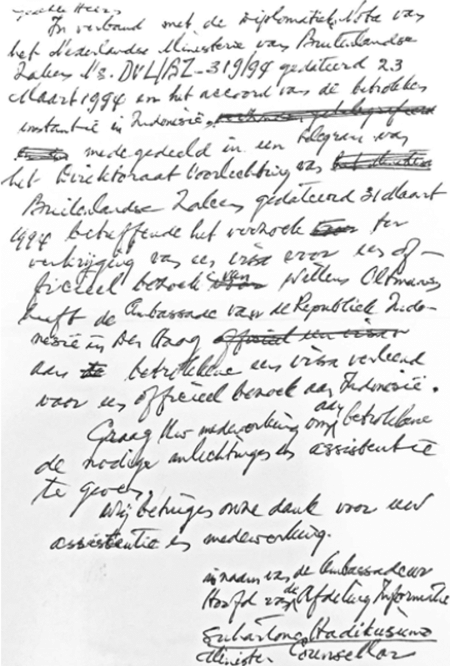 Geachte Heers
In verband met de Diplomatieke Nota van
het Nederlandse Ministerie van Buitenlandse
Zaken No. DVL/BZ-319/94 gedateerd 23
Maart 1994 en het accoord van de betrokken
instantie in Indonesië,
medegedeeld in een telegram van
het Direktoraat Voorlichting van
Buitenlandse Zaken gedateerd 31 Maart
1994 betreffende het verzoek ter
verkrijging van een visa voor een of-
ficieel bezoek van Willem Oltmans
heeft de Ambassade van de Republiek Indo-
nesië in Den Haag
aan betrokkene een visa verleend
voor een officieel bezoek aan Indonesië.
Graag Uw medewerking om aan betrokkene
de nodige inlichtingen en assistentie
te geven.
Wij betuigen onze dank voor uw
assistentie en medewerking.
in naam van de Ambassadeur
Hoofd van de Afdeling Informatie
Suhartono Hadikusumo
Minister Counsellor